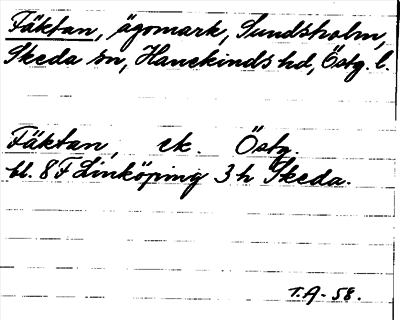 Fäktan, ägomark, Sundsholm,
Skeda sn, Hanekinds hd, Östg. l.
Fäktan, ek. Östg.
bl. 8F Linköping 3h Skeda.
T.A - 58.